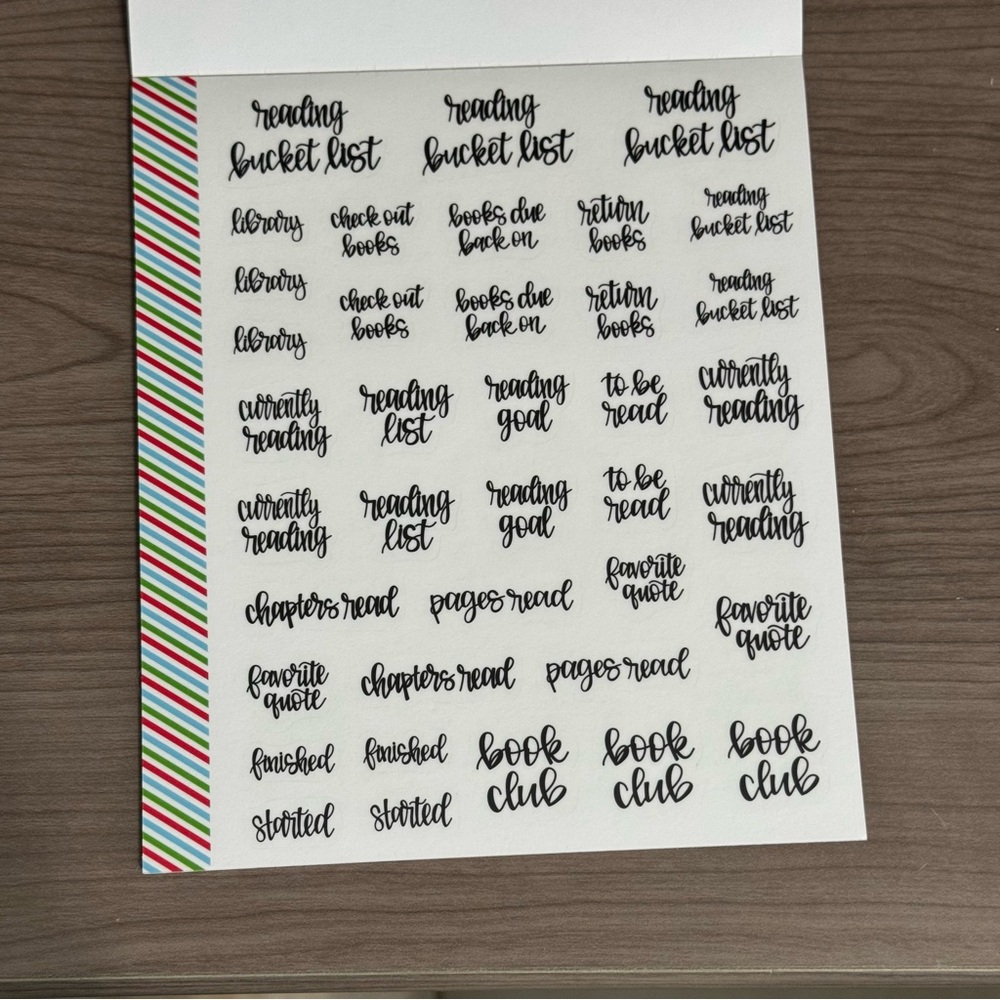 reading
bucket list
reading
bucket list
reading
bucket list
library
check out
books
books due
back on
return
books
reading
bucket list
library
check out
books
books due
back on
return
books
reading
bucket list
library
currently
reading
reading
list
reading
goal
to be
read
currently
reading
currently
reading
reading
list
reading
goal
to be
read
currently
reading
chapters read
pages read
favorite
quote
favorite
quote
favorite
quote
chapters read
pages read
finished
finished
book
club
book
club
book
club
started
started